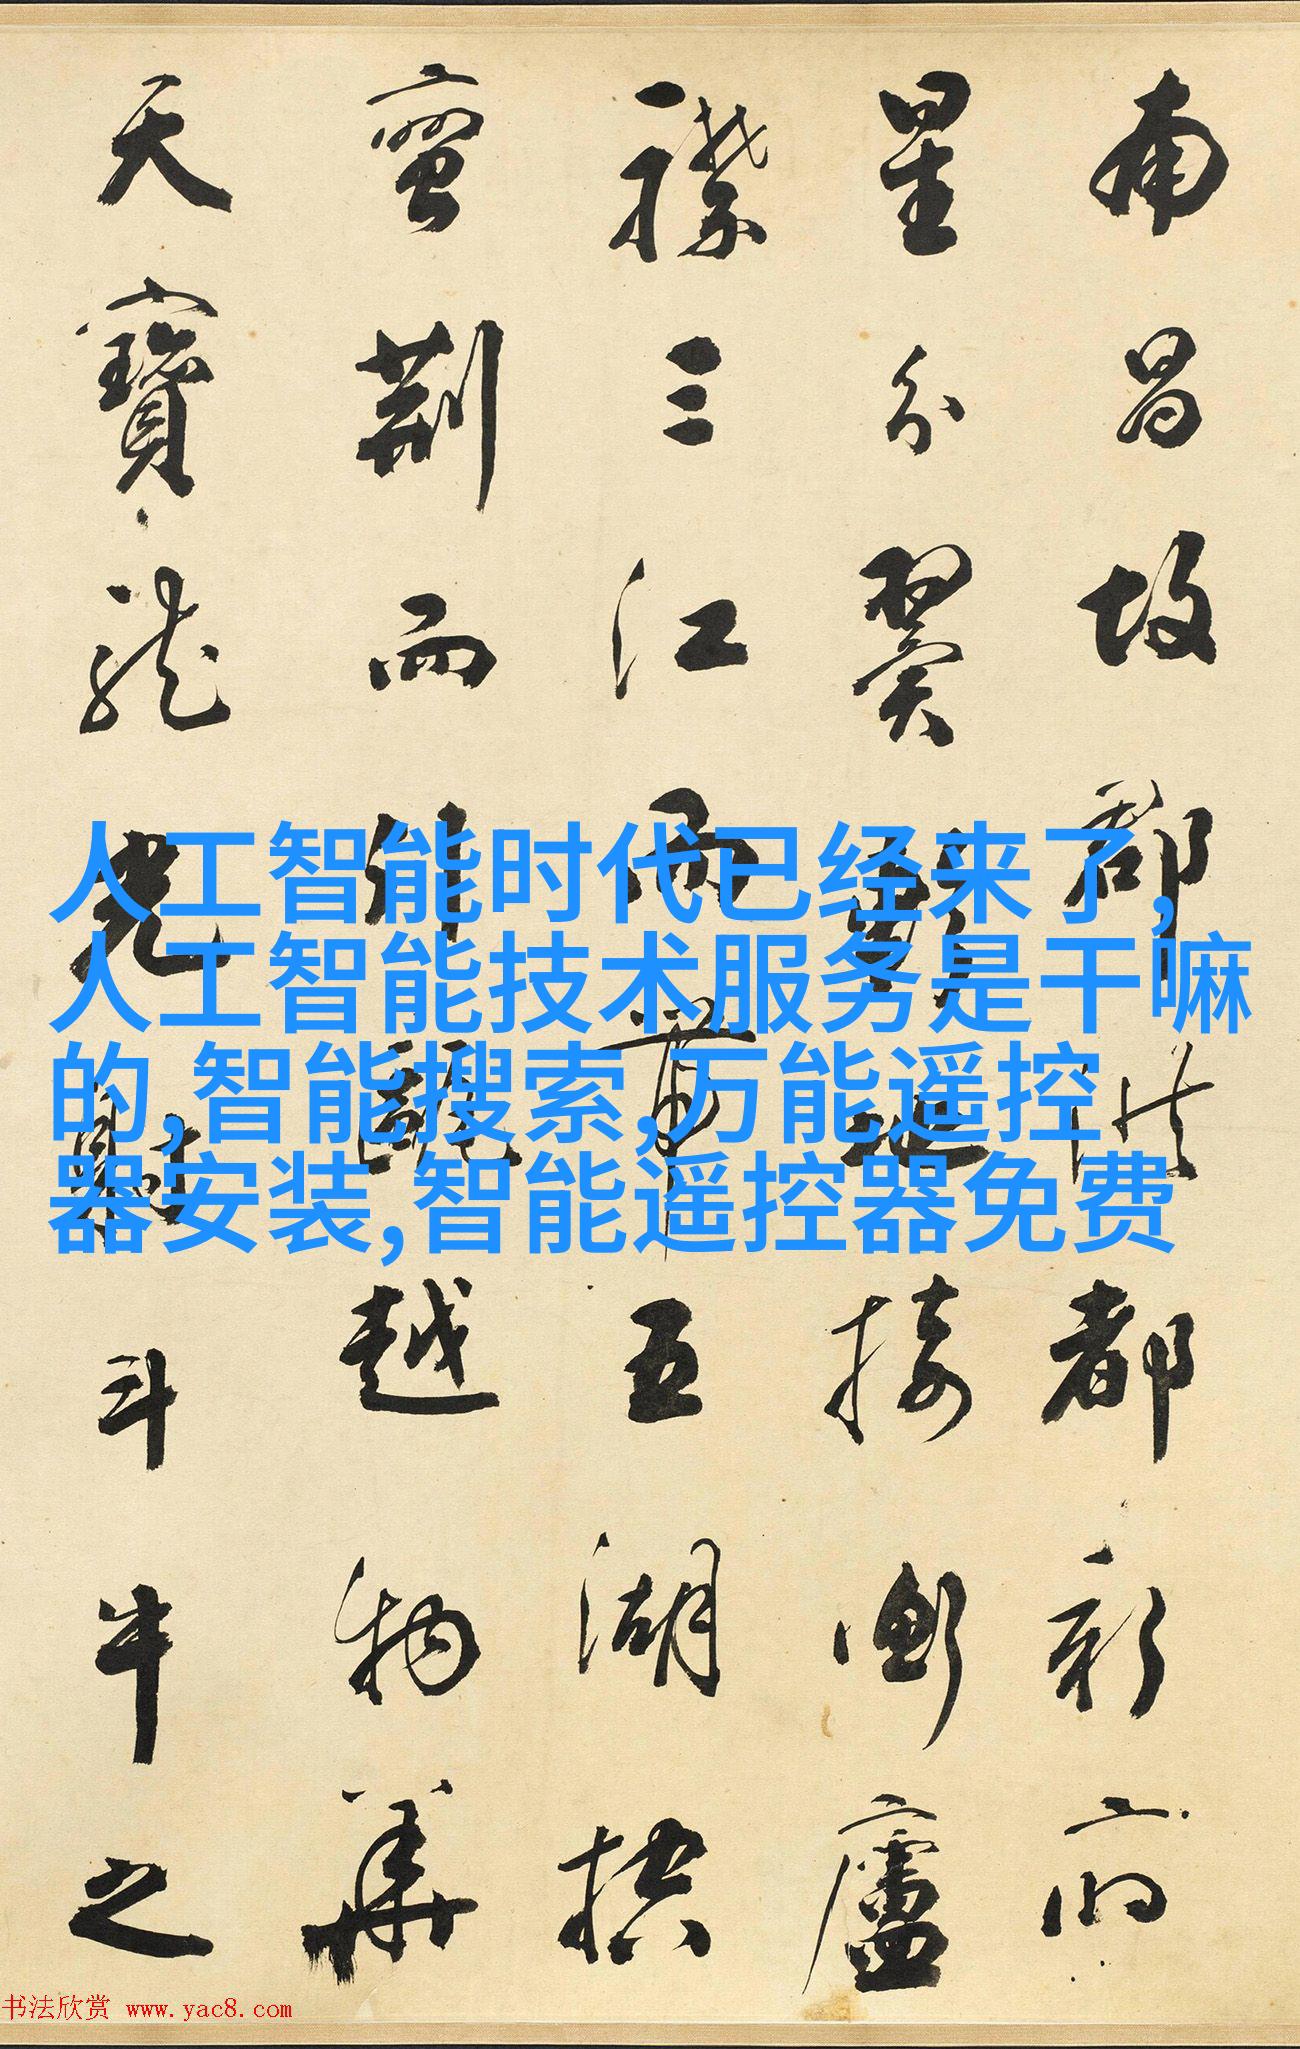 南昌故郡洪都新府
星分翼軫地接衡廬
襟三江而帶五湖控
蠻荊而引甌越物華
天寶龍光射斗牛之
人工智能时代已经来了,
人工智能技术服务是干嘛
的,智能搜索,万能遥控
器安装,智能遥控器免费
书法欣赏 www.yac8.com